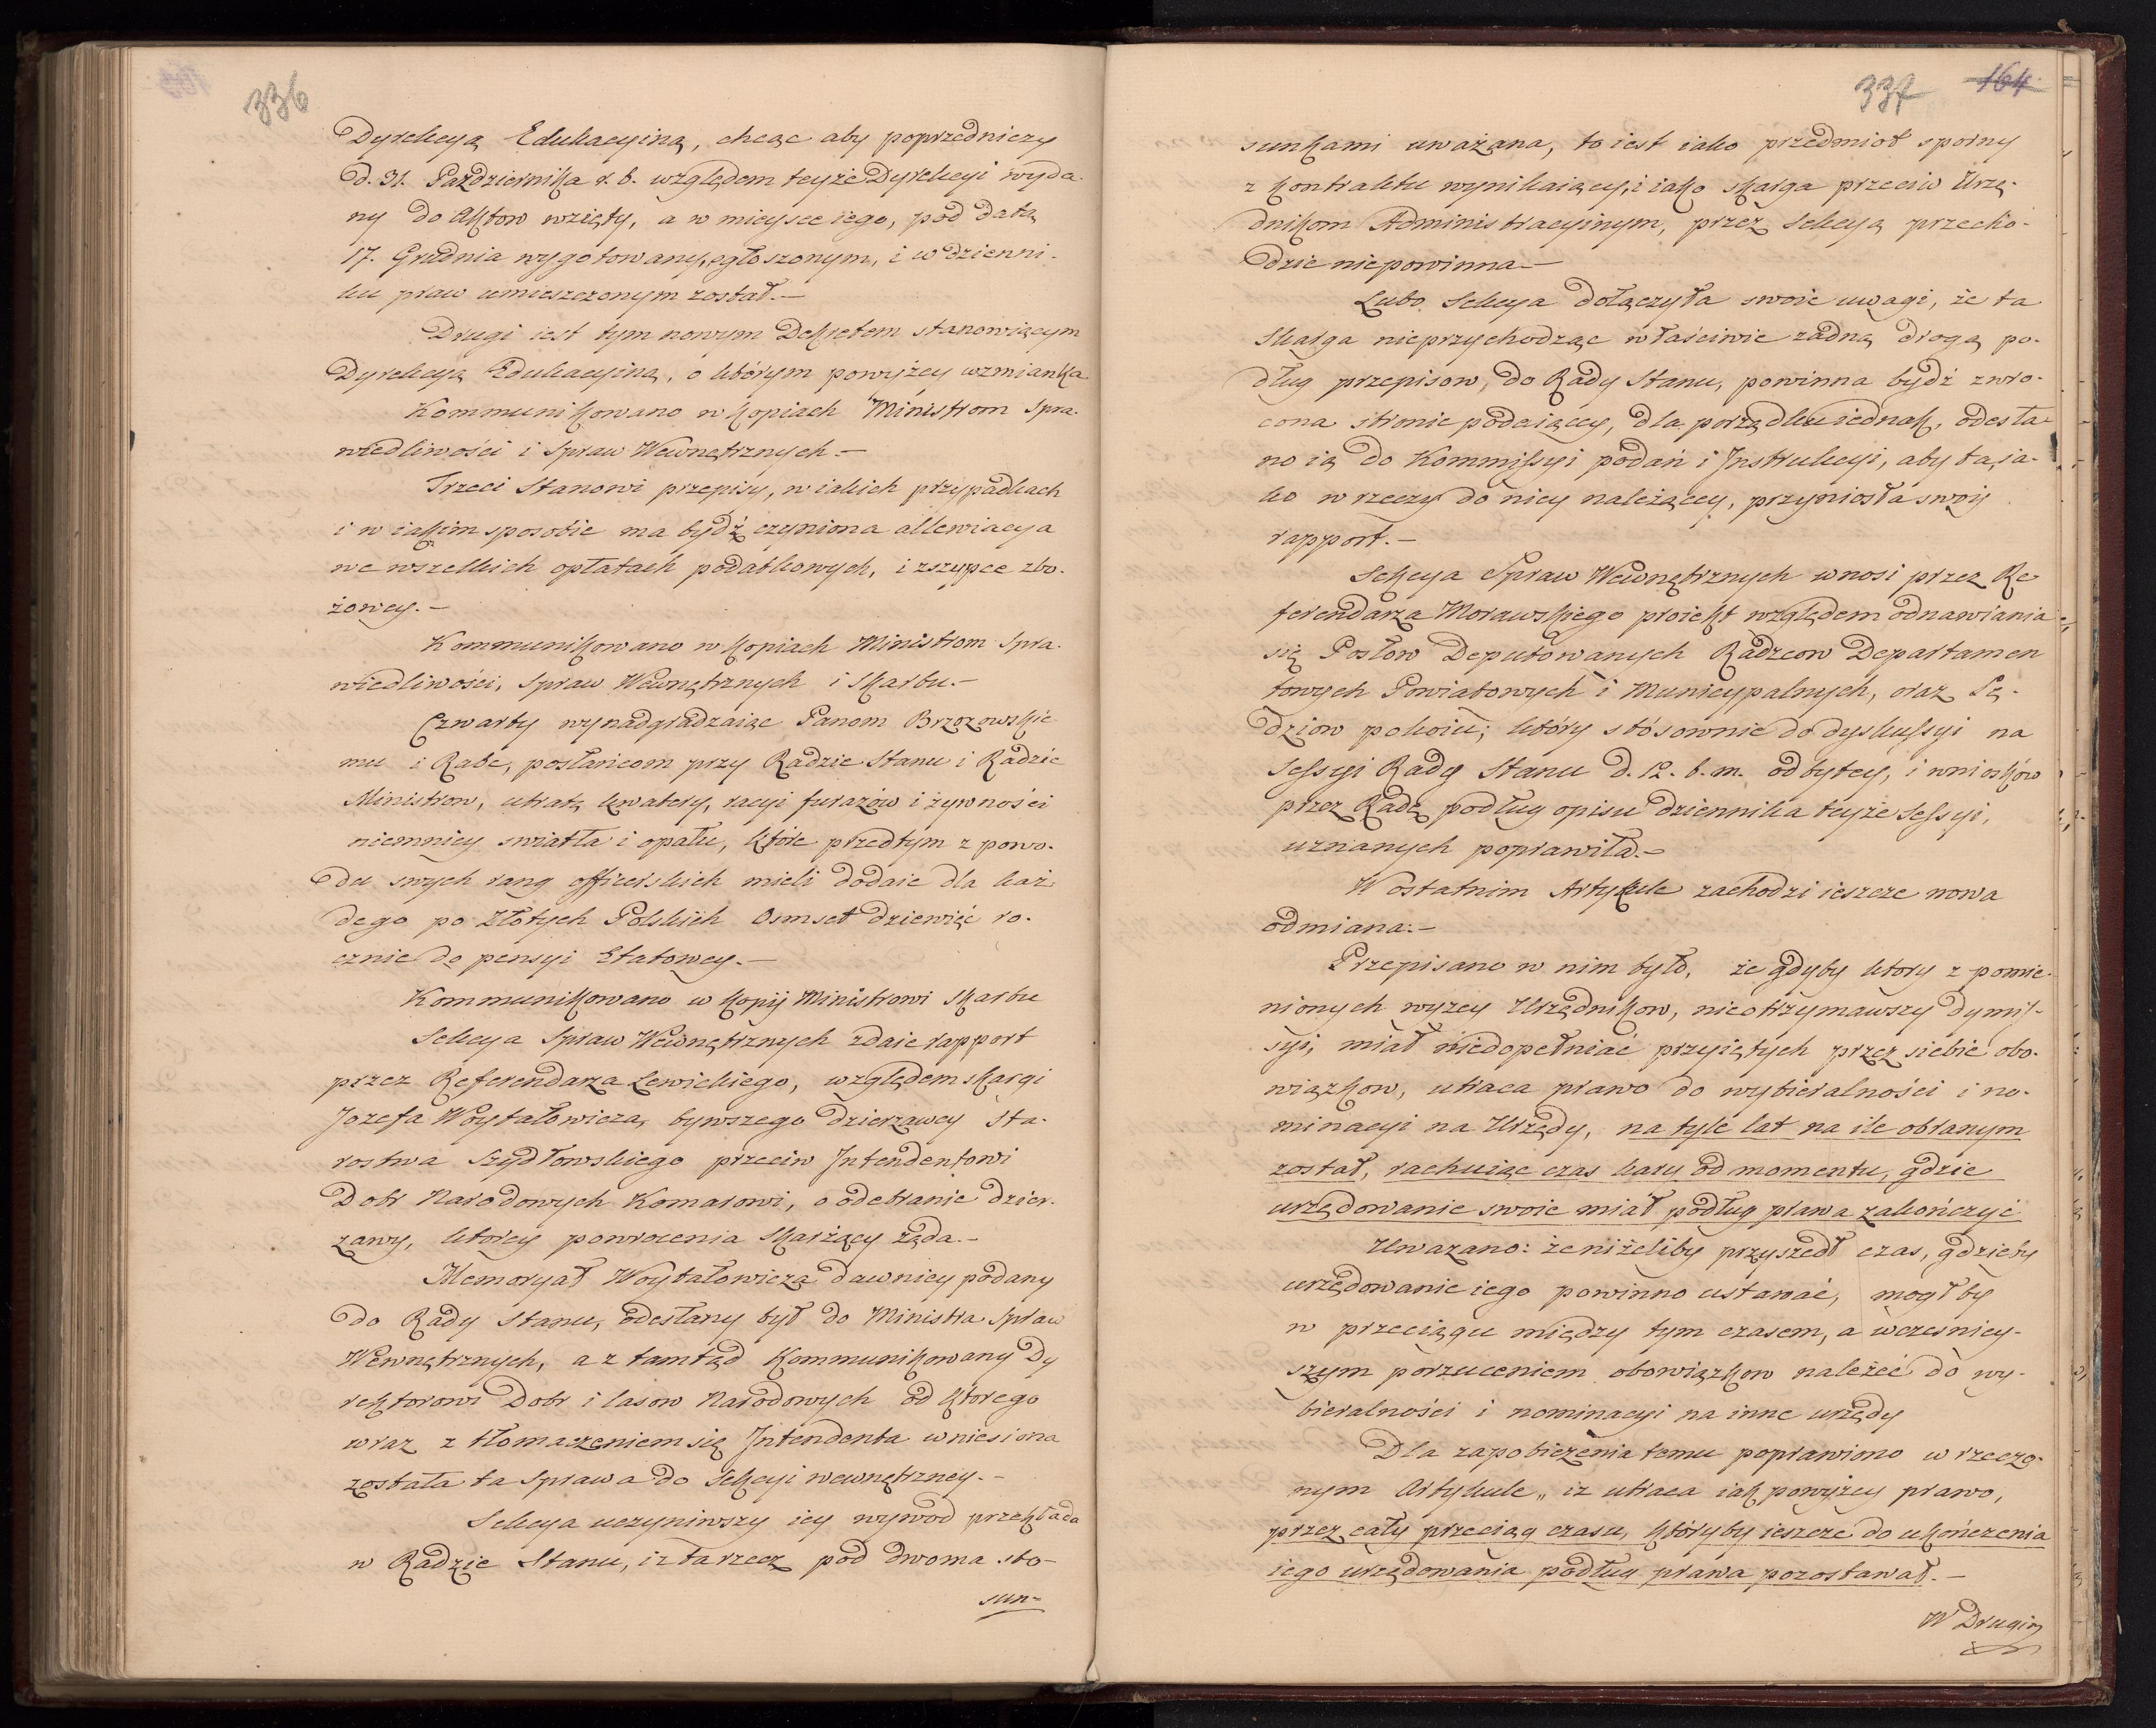 336
Dyrekcyą Edukacyiną, chcąc aby poprzedniczy
d. 31. Pazdziernika r. b. względem teyże Dyrekcyi wyda-
ny do Aktow wzięty, a w mieysce iego, pod datą
17. Grudnia wygotowany, ogłoszonym, i w dzienni-
ku praw umieszczonym został.—
Drugi iest tym nowym Dekretem stanowiącym
Dyrekcyą Edukacyiną, o którym powyżey wzmianka
Kommunikowano w kopiach Ministrom Spra-
wiedliwości i Spraw Wewnętrznych.—
Trzeci Stanowi przepisy, w iakich przypadkach
i w iakim sposobie ma bydź czyniona allewiacya
we wszelkich opłatach podatkowych, i zsypce zbo-
żowey.—
Kommunikowano w kopiach Ministrom Spra-
wiedliwości, Spraw Wewnętrznych i Skarbu.—
Czwarty wynadgradzaiąc Panom Brzozowskie
mu i Rabe, posłańcom przy Radzie Stanu i Radzie
Ministrow, utratę kwatery, racyi furażów i żywności
niemniey swiatła i opału, które przedtym z powo-
du swych rang officerskich mieli dodaie dla każ-
dego po Złotych Polskich Osmset dziewięć ro-
cznie do pensyi Etatowey.—
Kommunikowano w kopij Ministrowi Skarbu
Sekcya Spraw Wewnętrznych zdaie rapport
przez Referendarza Lewickiego, względem skargi
Jozefa Woytałowicza, bywszego dzierzawcy Sta-
rostwa Szydłowskiego przeciw Intendentowi
Dobr Narodowych Komarowi, o odebranie dzier-
zawy, ktorey powrocenia skarżący żąda.—
Memoryał Woytałowicza dawniey podany
do Rady Stanu, odesłany był do Ministra Spraw
Wewnętrznych, a z tamtąd kommunikowany Dy
rektorowi Dobr i lasow Narodowych od ktorego
wraz z tłomaczeniem się Intendenta wniesiona
została ta Sprawa do Sekcyi wewnętrzney.—
Sekcya uczyniwszy iey wywod przekłada
w Radzie Stanu, iż ta rzecz pod dwoma sto-
sun-
337 164
sunkami uważana, to iest iako przedmiot sporny
z kontraktu wynikaiący, i iako skarga przeciw Urzę-
dnikom Administracyinym, przez Sekcyą przecho-
dzic niepowinna—
Lubo Sekcya dołączyła swoie uwagi, że ta
skarga nieprzychodząc właściwie zadną drogą po-
dług przepisow, do Rady Stanu, powinna bydź zwro-
cona stronie podaiącey, dla porządku iednak, odesła-
no ią do Kommissyi podań i Instrukcyi, aby ta, ia-
ko w rzeczy do niey należącey, przyniosła swóy
rapport.—
Sekcya Spraw Wewnętrznych wnosi przez Re-
ferendarza Morawskiego proiekt względem odnawiania
się Posłow Deputowanych Radzcow Departamen
towych Powiatowych i Municypalnych, oraz Sę-
dziow pokoiu; który stósownie do dyskussyi na
Sessyi Rady Stanu d. 12. b. m. odbytey, i wniosków
przez Radę podług opisu dziennika teyże Sessyi,
uznanych poprawiła.—
W ostatnim Artykule zachodzi ieszcze nowa
odmiana:—
Przepisano w nim było, że gdyby ktory z pomie-
nionych wyzey Urzędnikow, nieotrzymawszy dymis-
syi, miał niedopełniać przyiętych przez siebie obo-
wiązkow, utraca prawo do wybieralności i no-
minacyi na Urzędy, na tyle lat na ile obranym
został, rachuiąc czas kary od momentu, gdzie
urzędowanie swoie miał podług prawa zakończyć
Uwazano: że niżeliby przyszedł czas, gdzieby
urzędowanie iego powinno ustawać, mogłby
w przeciągu między tym czasem, a wczesniey-
szym porzuceniem obowiązkow należeć do wy-
bieralności i nominacyi na inne urzędy
Dla zapobieżenia temu poprawiono w rzeczo-
nym Artykule „ iz utraca iak powyżey prawo,
przez cały przeciąg czasu, któryby ieszcze do ukończenia
iego urzędowania podług prawa pozostawał.—
W Drugim